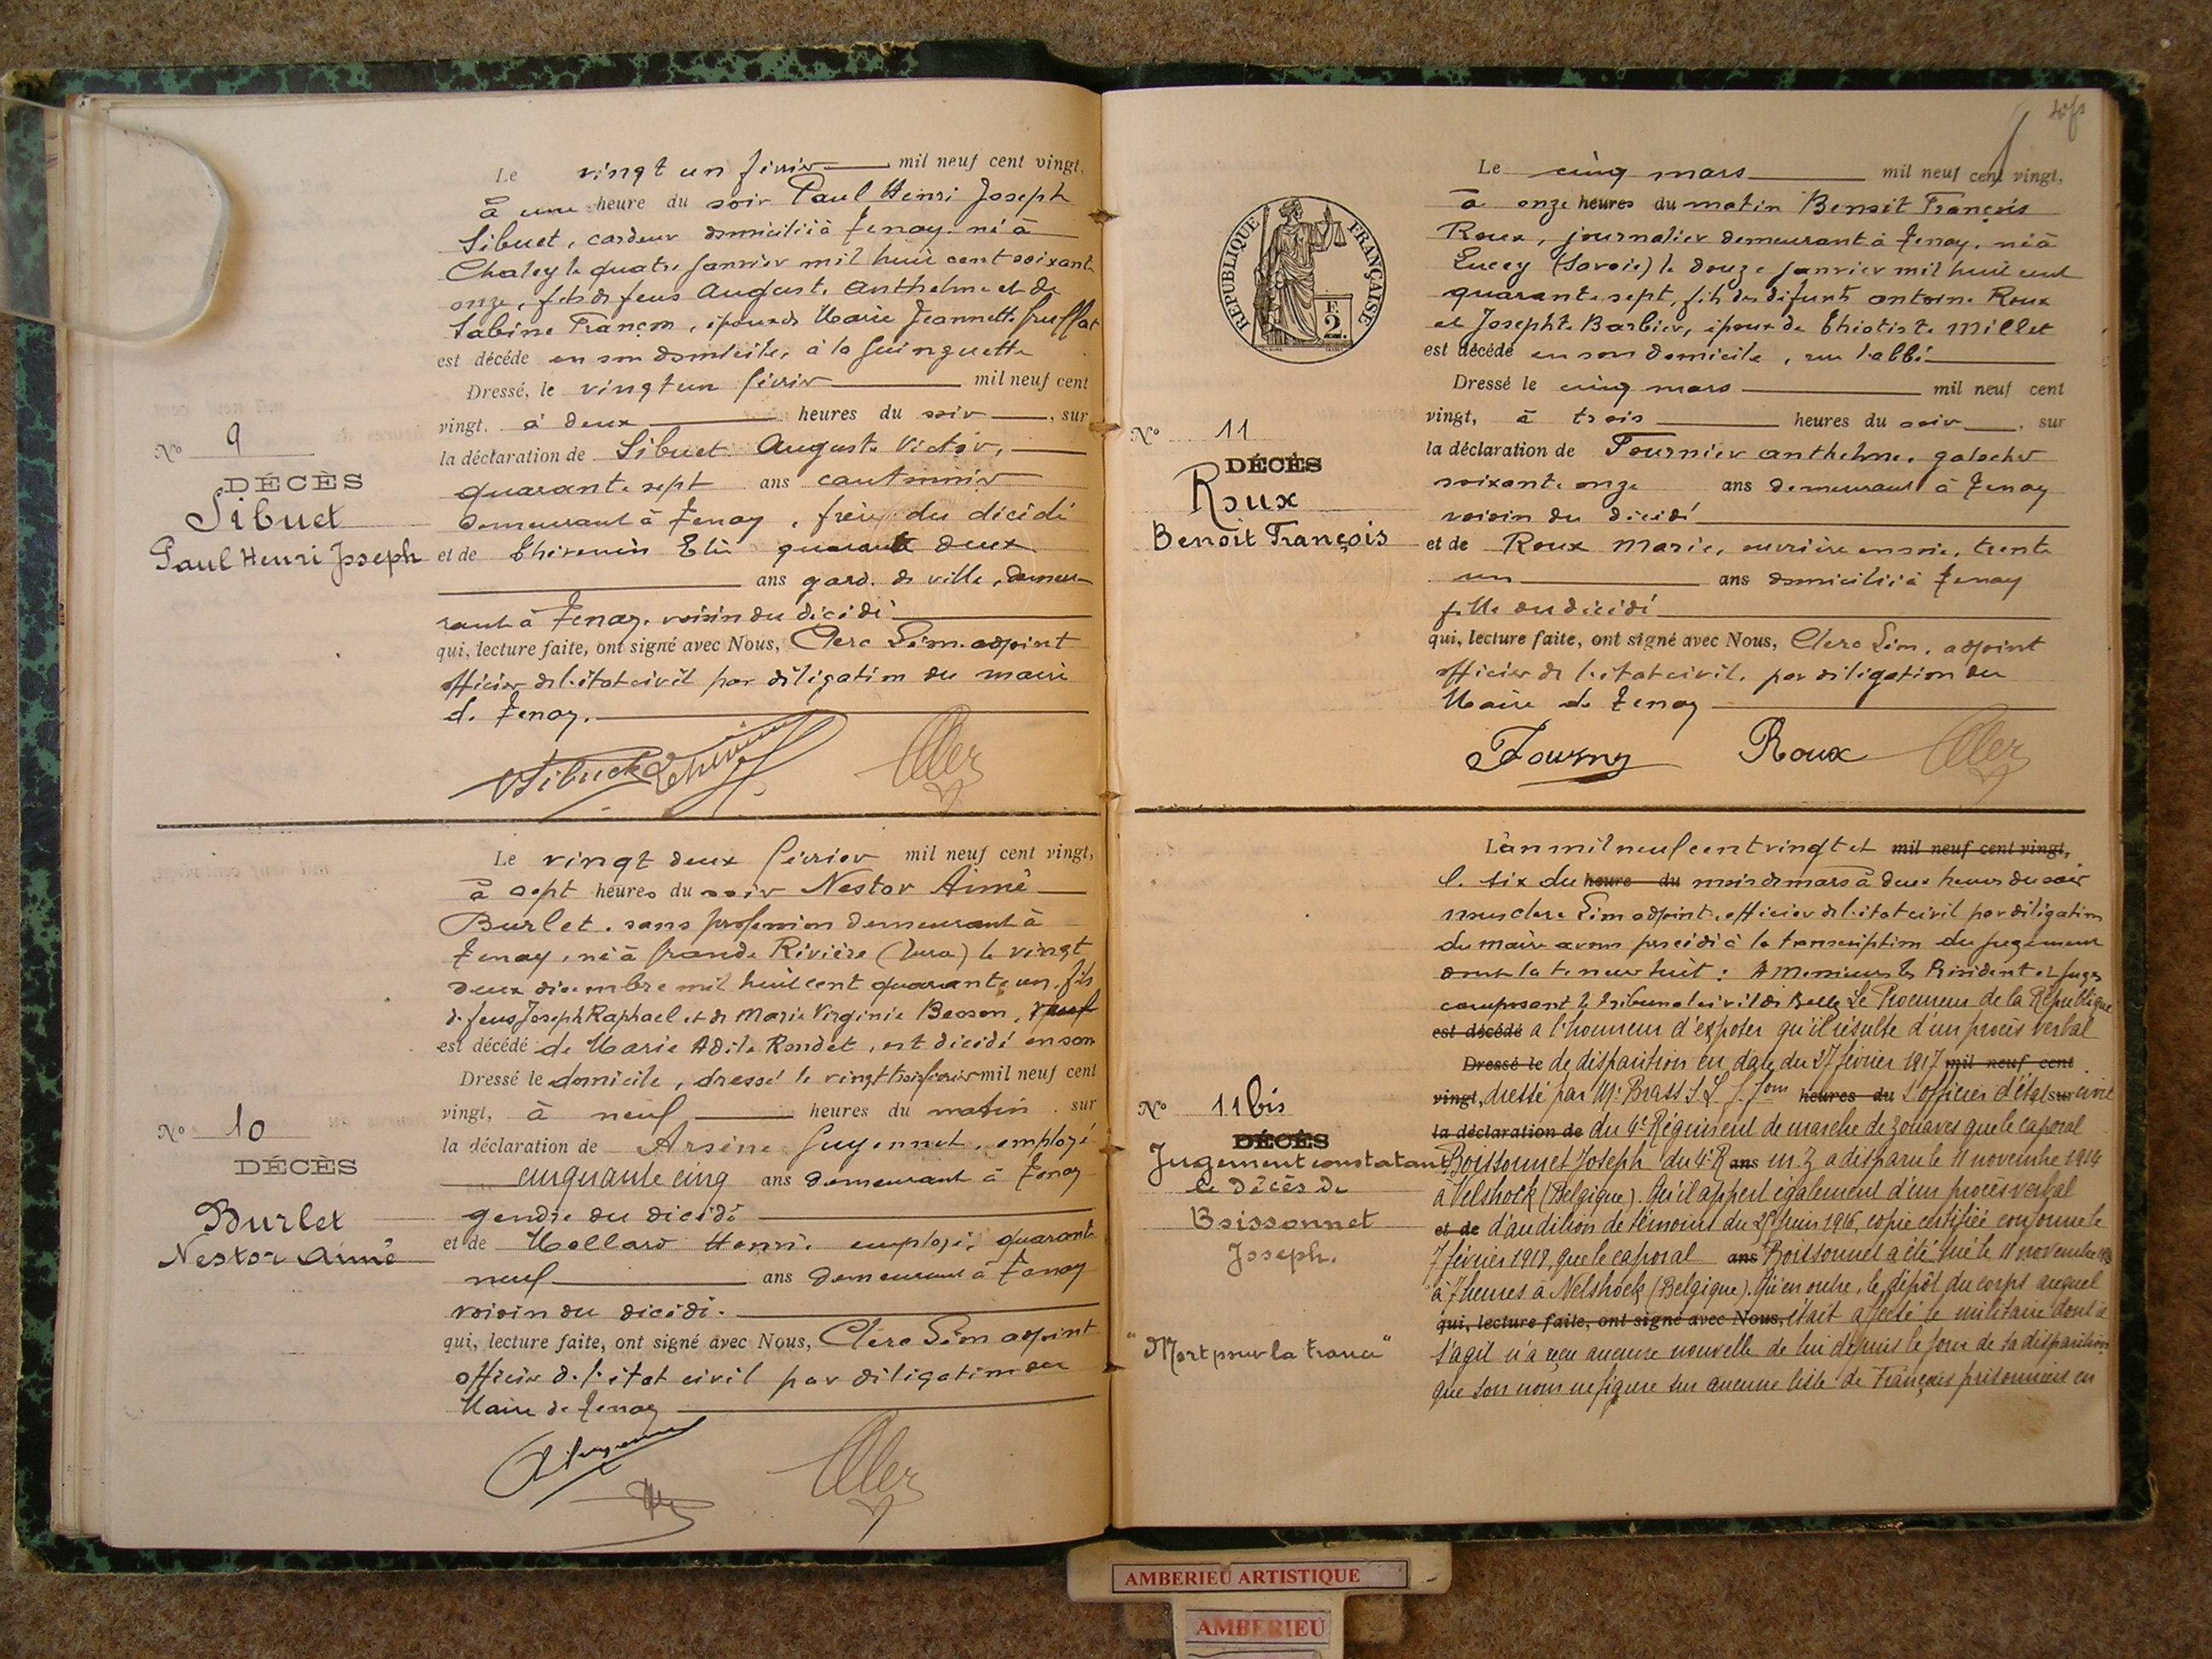 Le vingt un février mil neuf cent vingt,
à une heure du soir Paul Henri Joseph
Sibuet, cardeur domicilié à Tenay. né à
Chaley le quatre janvier mil huit cent soixante
onze, fils de feus August. Anthelme et de
Sabine Françon, époux de Marie Jeannette
est décédé en son domicile, à la Guinguette
Dressé, le vingt un février mil neuf cent
vingt, à deux heures du soir, sur
la déclaration de Sibuet Auguste Victor,
quarante sept ans cantonnier
demeurant à Tenay, frère du décédé
et de Thévenin Elie quarante deux
ans gard. de ville, demeu-
rant à Tenay. voisin du décédé
qui, lecture faite, ont signé avec Nous, Clerc Sim. adjoint
officier de l'état civil par délégation du maire
de Tenay.
No 9
DÉCÈS
Sibuet
Paul Henri Joseph
Le vingt deux février mil neuf cent vingt,
à sept heures du soir Nestor Aimé
Burlet. sans profession demeurant à
Tenay, né à Grande Rivière (Jura) le vingt
deux décembre mil huit cent quarante un. fils
de feus Joseph Raphael et de Marie Virginie Besson, veuf
est décédé de Marie Adèle Rondet, est décédé en son
Dressé le domicile, dressé le vingt trois février mil neuf cent
vingt, à neuf heures du matin. sur
la déclaration de Arsène Guyennet, employé
cinquante cinq ans demeurant à Tenay
gendre du décédé
et de Mollard Henri. employé, quarante
neuf ans demeurant à Tenay
voisin du décédé.
qui, lecture faite, ont signé avec Nous, Clerc Sim adjoint
officier de l'état civil par délégation du
Maire de Tenay
No 10
DÉCÈS
Burlet
Nestor Aimé
Le cinq mars mil neuf cent vingt,
à onze heures du matin Benoit François
Roux, journalier demeurant à Tenay, né à
Lucey (Savoie) le douze janvier mil huit cent
quarante sept, fils des défunts Antoine Roux
et Josephte Barbier, époux de Millet
est décédé en son domicile, rue l'abbé
Dressé le cinq mars mil neuf cent
vingt, à trois heures du soir, sur
la déclaration de Fournier Anthelme. galocher
soixante onze ans demeurant à Tenay
voisin du décédé
et de Roux Marie, ouvrière en soie, trente
un ans domiciliée à Tenay
fille du décédé
qui, lecture faite, ont signé avec Nous, Clerc Sim. adjoint
officier de l'état civil. par délégation du
Maire de Tenay
Roux
RÉPUBLIQUE FRANÇAISE
F.
2.
No 11
DÉCÈS
Roux
Benoit François
L'an mil neuf cent vingt et mil neuf cent vingt,
le six du heure du mois de mars à deux heures du soir
nous clerc Sim adjoint. officier de l'état civil par délégation
du maire avons procédé à la transcription du jugement
dont la teneur suit : A Messieurs les Président et Juges
composant le tribunal civil de Belley Le Procureur de la République
est décédé a l'honneur d'exposer qu'il résulte d'un procès verbal
Dressé le de disparition en date du 27 février 1917 mil neuf cent
vingt, dressé par Mr. Brass S. L. heures du l'officier d'état sur civil
la déclaration de du 4e Régiment de marche de Zouaves que le caporal
Boissonnet Joseph du 4e R ans m. Z a disparu le 11 novembre 1914
à Velshoek (Belgique). Qu'il appert également d'un procès verbal
et de d'audition de témoins du juin 1916, copie certifiée conforme le
7 février 1918, que le caporal ans Boissonnet a été tué le 11 novembre
à 7 heures à Nelshoek (Belgique). Qu'en outre, le dépôt du corps auquel
qui, lecture faite, ont signé avec Nous, était affecté le militaire dont il
s'agit n'a reçu aucune nouvelle de lui depuis le jour de sa disparition
que son nom ne figure sur aucune liste de Français prisonniers en
No 11 bis
DÉCÈS
Jugement constatant
le décès de
Boissonnet
Joseph.
"Mort pour la France"
AMBERIEU ARTISTIQUE
AMBERIEU